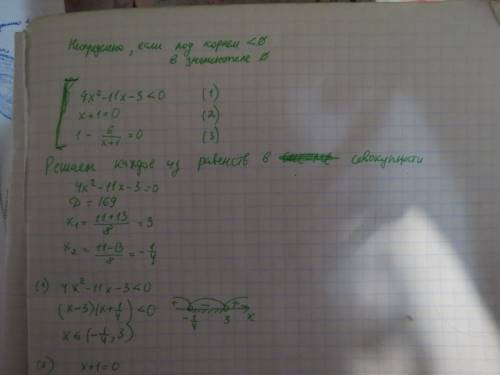 Неопределено, если под корнем < 0
в знаменателе 0
4x²-11x-3<0 (1)
x+1=0 (2)
1 - 6/(x+1) = 0 (3)
Решаем каждое из равенств в совокупности
4x²-11x-3=0
D = 169
x₁ = (11+13)/8 = 3
x₂ = (11-13)/8 = -1/4
(1) 4x²-11x-3<0
(x-3)(x+1/4) <0
+ - + -1/4 3 x
x ∈ (-1/4, 3)
(2) x+1=0